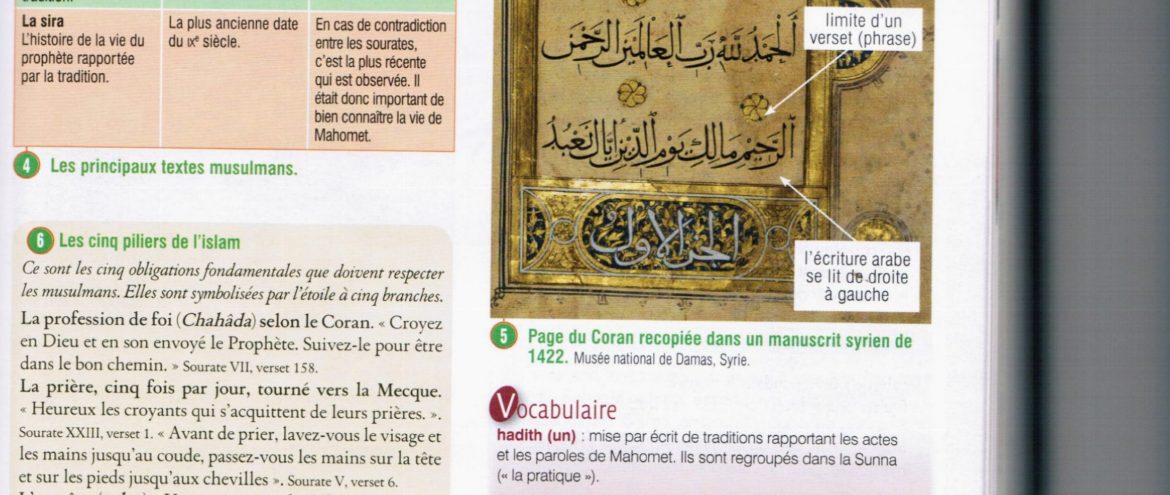 La sira
L'histoire de la vie du
prophète rapportée
par la tradition.
La plus ancienne date
du IXe siècle.
En cas de contradiction
entre les sourates,
c'est la plus récente
qui est observée. Il
était donc important de
bien connaître la vie de
Mahomet.
4 Les principaux textes musulmans.
6 Les cinq piliers de l'islam
Ce sont les cinq obligations fondamentales que doivent respecter
les musulmans. Elles sont symbolisées par l'étoile à cinq branches.
La profession de foi (Chahâda) selon le Coran. « Croyez
en Dieu et en son envoyé le Prophète. Suivez-le pour être
dans le bon chemin. » Sourate VII, verset 158.
La prière, cinq fois par jour, tourné vers la Mecque.
« Heureux les croyants qui s'acquittent de leurs prières. ».
Sourate XXIII, verset 1. « Avant de prier, lavez-vous le visage et
les mains jusqu'au coude, passez-vous les mains sur la tête
et sur les pieds jusqu'aux chevilles ». Sourate V, verset 6.
limite d'un
verset (phrase)
الحمد لله رب العالمين الرحمن
الرحيم مالك يوم الدين إياك نعبد
الجز الاول
l'écriture arabe
se lit de droite
à gauche
5 Page du Coran recopiée dans un manuscrit syrien de
1422. Musée national de Damas, Syrie.
Vocabulaire
hadith (un) : mise par écrit de traditions rapportant les actes
et les paroles de Mahomet. Ils sont regroupés dans la Sunna
(« la pratique »).